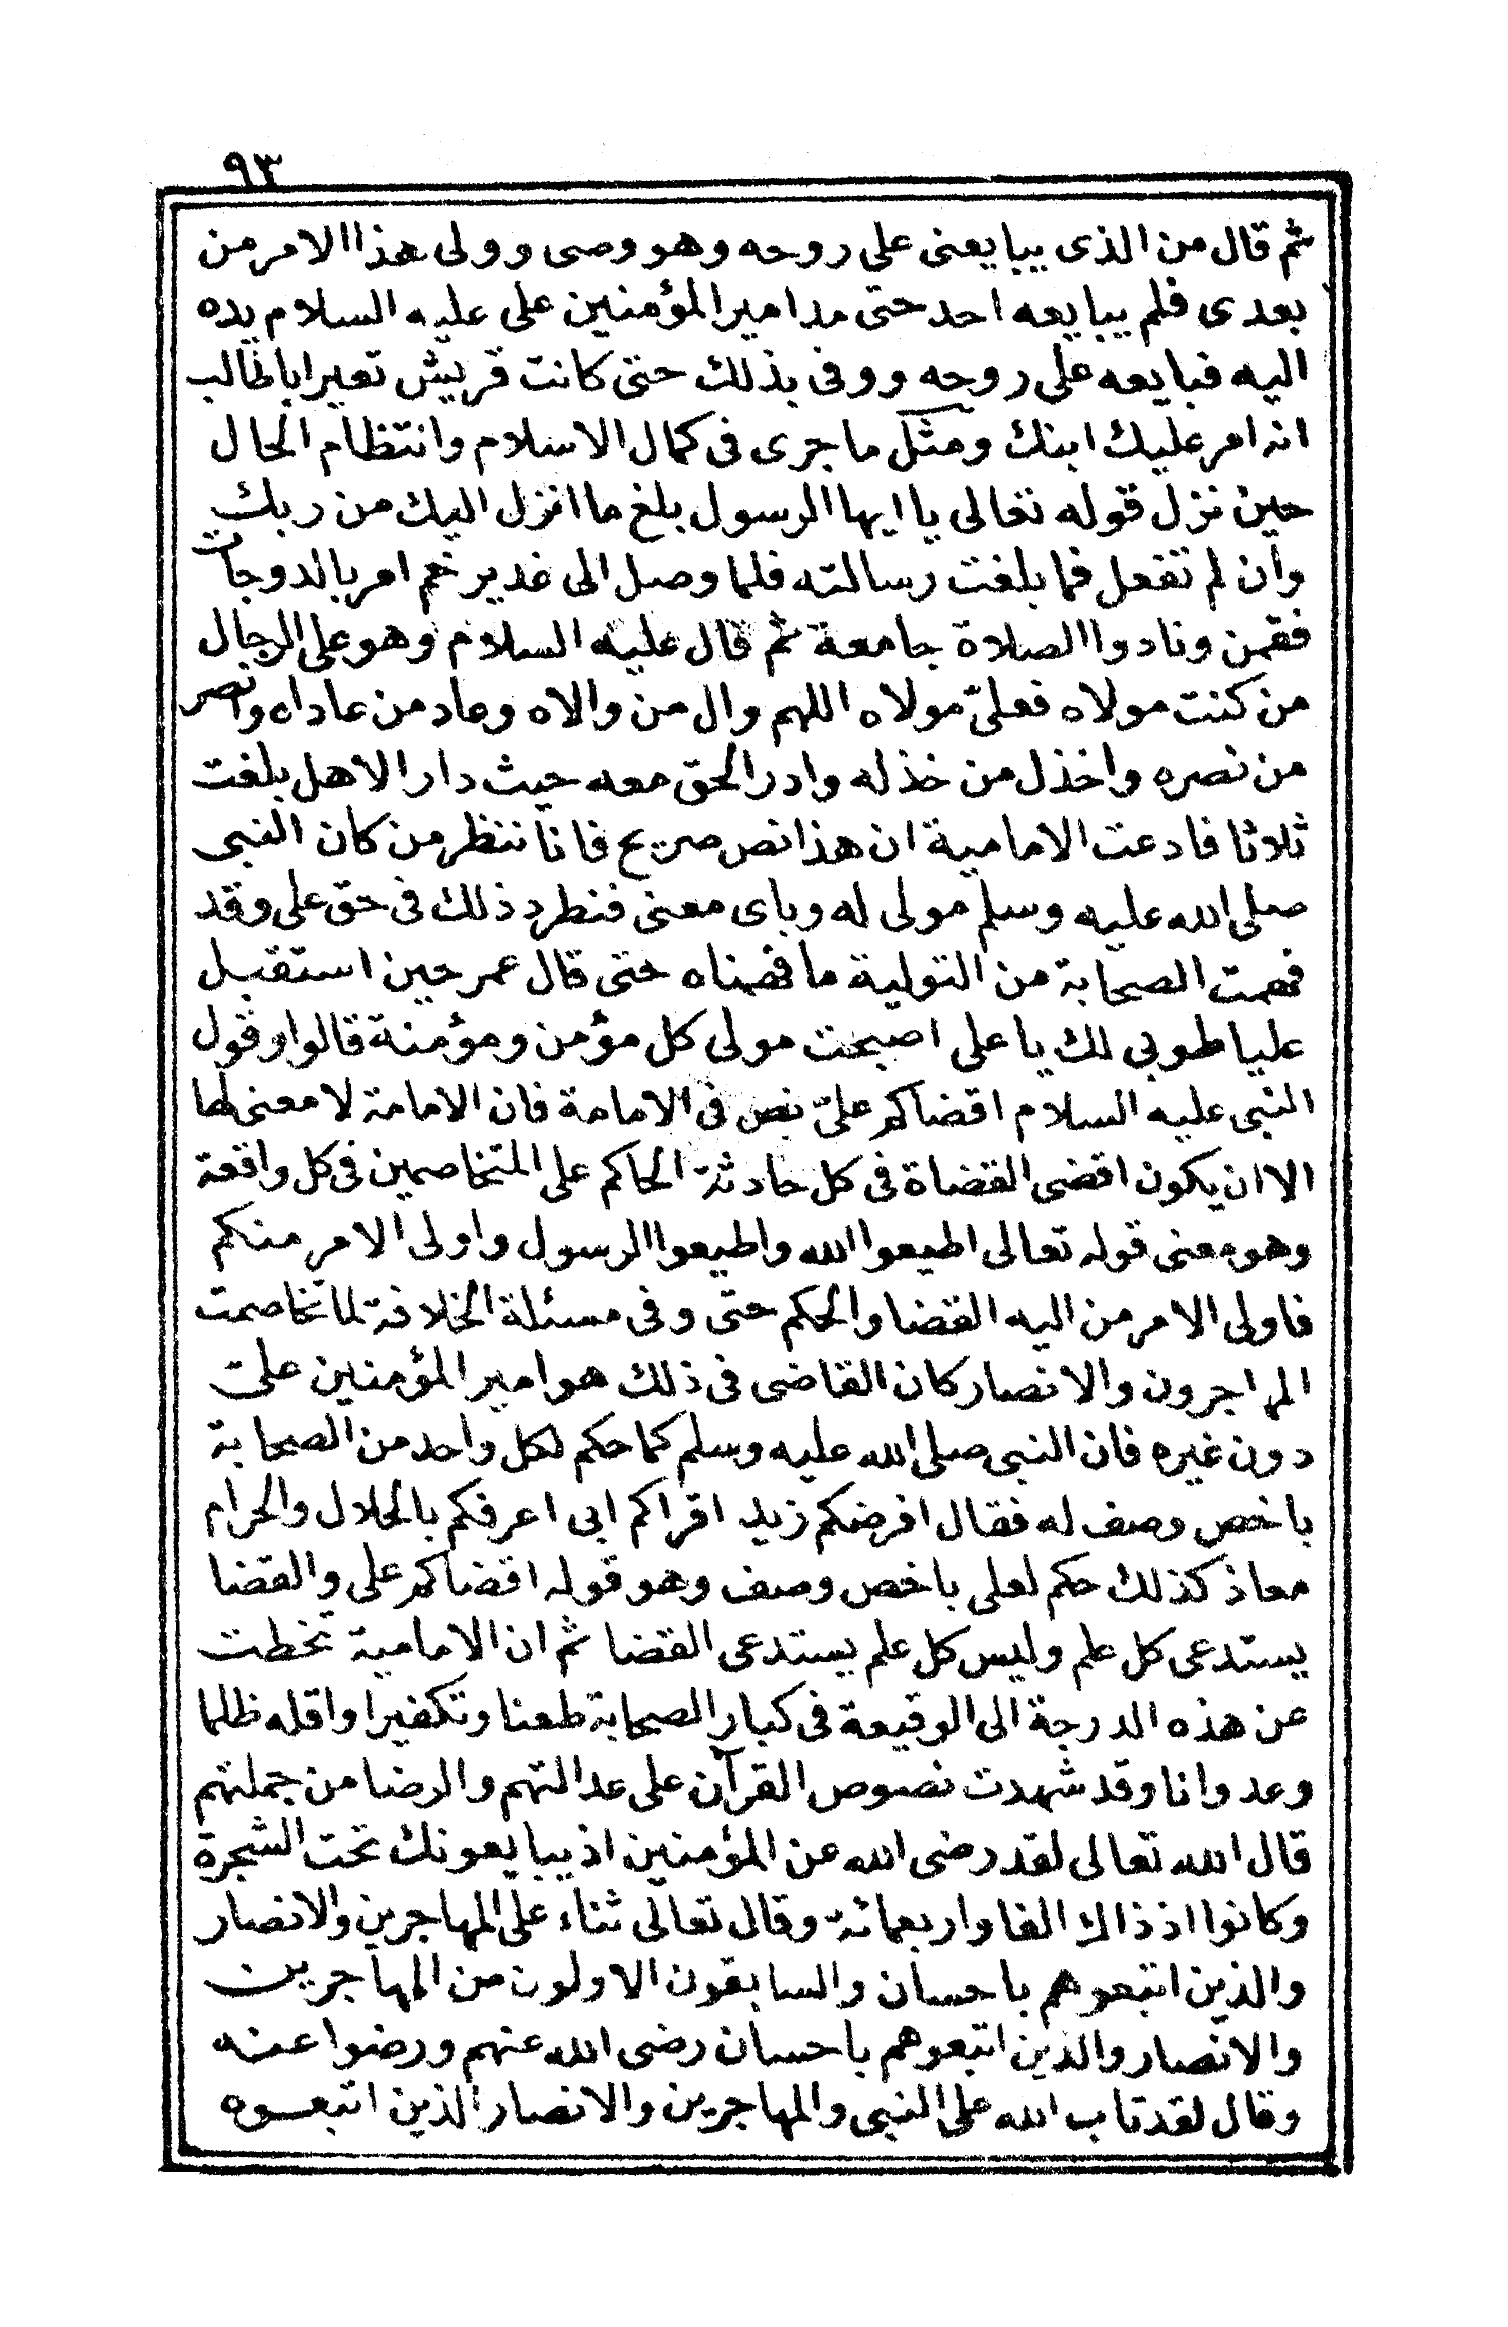 ٩٣
ثم قال من الذى يبايعنى على روحه وهو وصى وولى هذا الامر من
بعدى فلم يبايعه احد حتى مد امير المؤمنين على عليه السلام يده
اليه فبايعه على روحه ووفى بذلك حتى كانت قريش تعير اباطالب
انه امر عليك ابنك ومثل ما جرى فى كمال الاسلام وانتظام الحال
حين نزل قوله تعالى يا ايها الرسول بلغ ما انزل اليك من ربك
وان لم تفعل فما بلغت رسالته فلما وصل الى غدير خم امر بالدوحات
فقممن ونادوا الصلاة جامعة ثم قال عليه السلام وهو على الرحال
من كنت مولاه فعلىّ مولاه اللهم وال من والاه وعاد من عاداه وانصر
من نصره واخذل من خذله وادر الحق معه حيث دار الاهل بلغت
ثلاثا فادعت الامامية ان هذا نص صريح فانا ننظر من كان النبى
صلى الله عليه وسلم مولى له وباى معنى فنطرد ذلك فى حق على وقد
فهمت الصحابة من التولية ما فهمناه حتى قال عمر حين استقبل
عليا طوبى لك يا على اصبحت مولى كل مؤمن ومؤمنة قالوا وقول
النبى عليه السلام اقضاكم علىّ نص فى الامامة فان الامامة لا معنى لها
الا ان يكون اقضى القضاة فى كل حادثة الحاكم على المتخاصمين فى كل واقعة
وهو معنى قوله تعالى اطيعوا الله واطيعوا الرسول واولى الامر منكم
فاولى الامر من اليه القضا والحكم حتى وفى مسئلة الخلافة لما تخاصمت
المهاجرون والانصار كان القاضى فى ذلك هو امير المؤمنين على
دون غيره فان النبى صلى الله عليه وسلم كما حكم لكل واحد من الصحابة
باخص وصف له فقال افرضكم زيد اقراكم ابى اعرفكم بالحلال والحرام
معاذ كذلك حكم لعلى باخص وصف وهو قوله اقضاكم على والقضا
يستدعى كل علم وليس كل علم يستدعى القضا ثم ان الامامية تخطت
عن هذه الدرجة الى الوقيعة فى كبار الصحابة طعنا وتكفيرا واقله ظلما
وعدوانا وقد شهدت نصوص القرآن على عدالتهم والرضا من جملتهم
قال الله تعالى لقد رضى الله عن المؤمنين اذ يبايعونك تحت الشجرة
وكانوا اذ ذاك الفا واربعمائة وقال تعالى ثناء على المهاجرين والانصار
والذين اتبعوهم باحسان والسابقون الاولون من المهاجرين
والانصار والذين اتبعوهم باحسان رضى الله عنهم ورضوا عنه
وقال لقد تاب الله على النبى والمهاجرين والانصار الذين اتبعوه